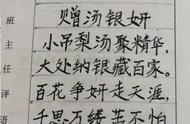 班主任评语
赠汤银妍
小吊梨汤聚精华,
大处纳银藏百家。
百花争妍走天涯,
千思万缕苦不怕